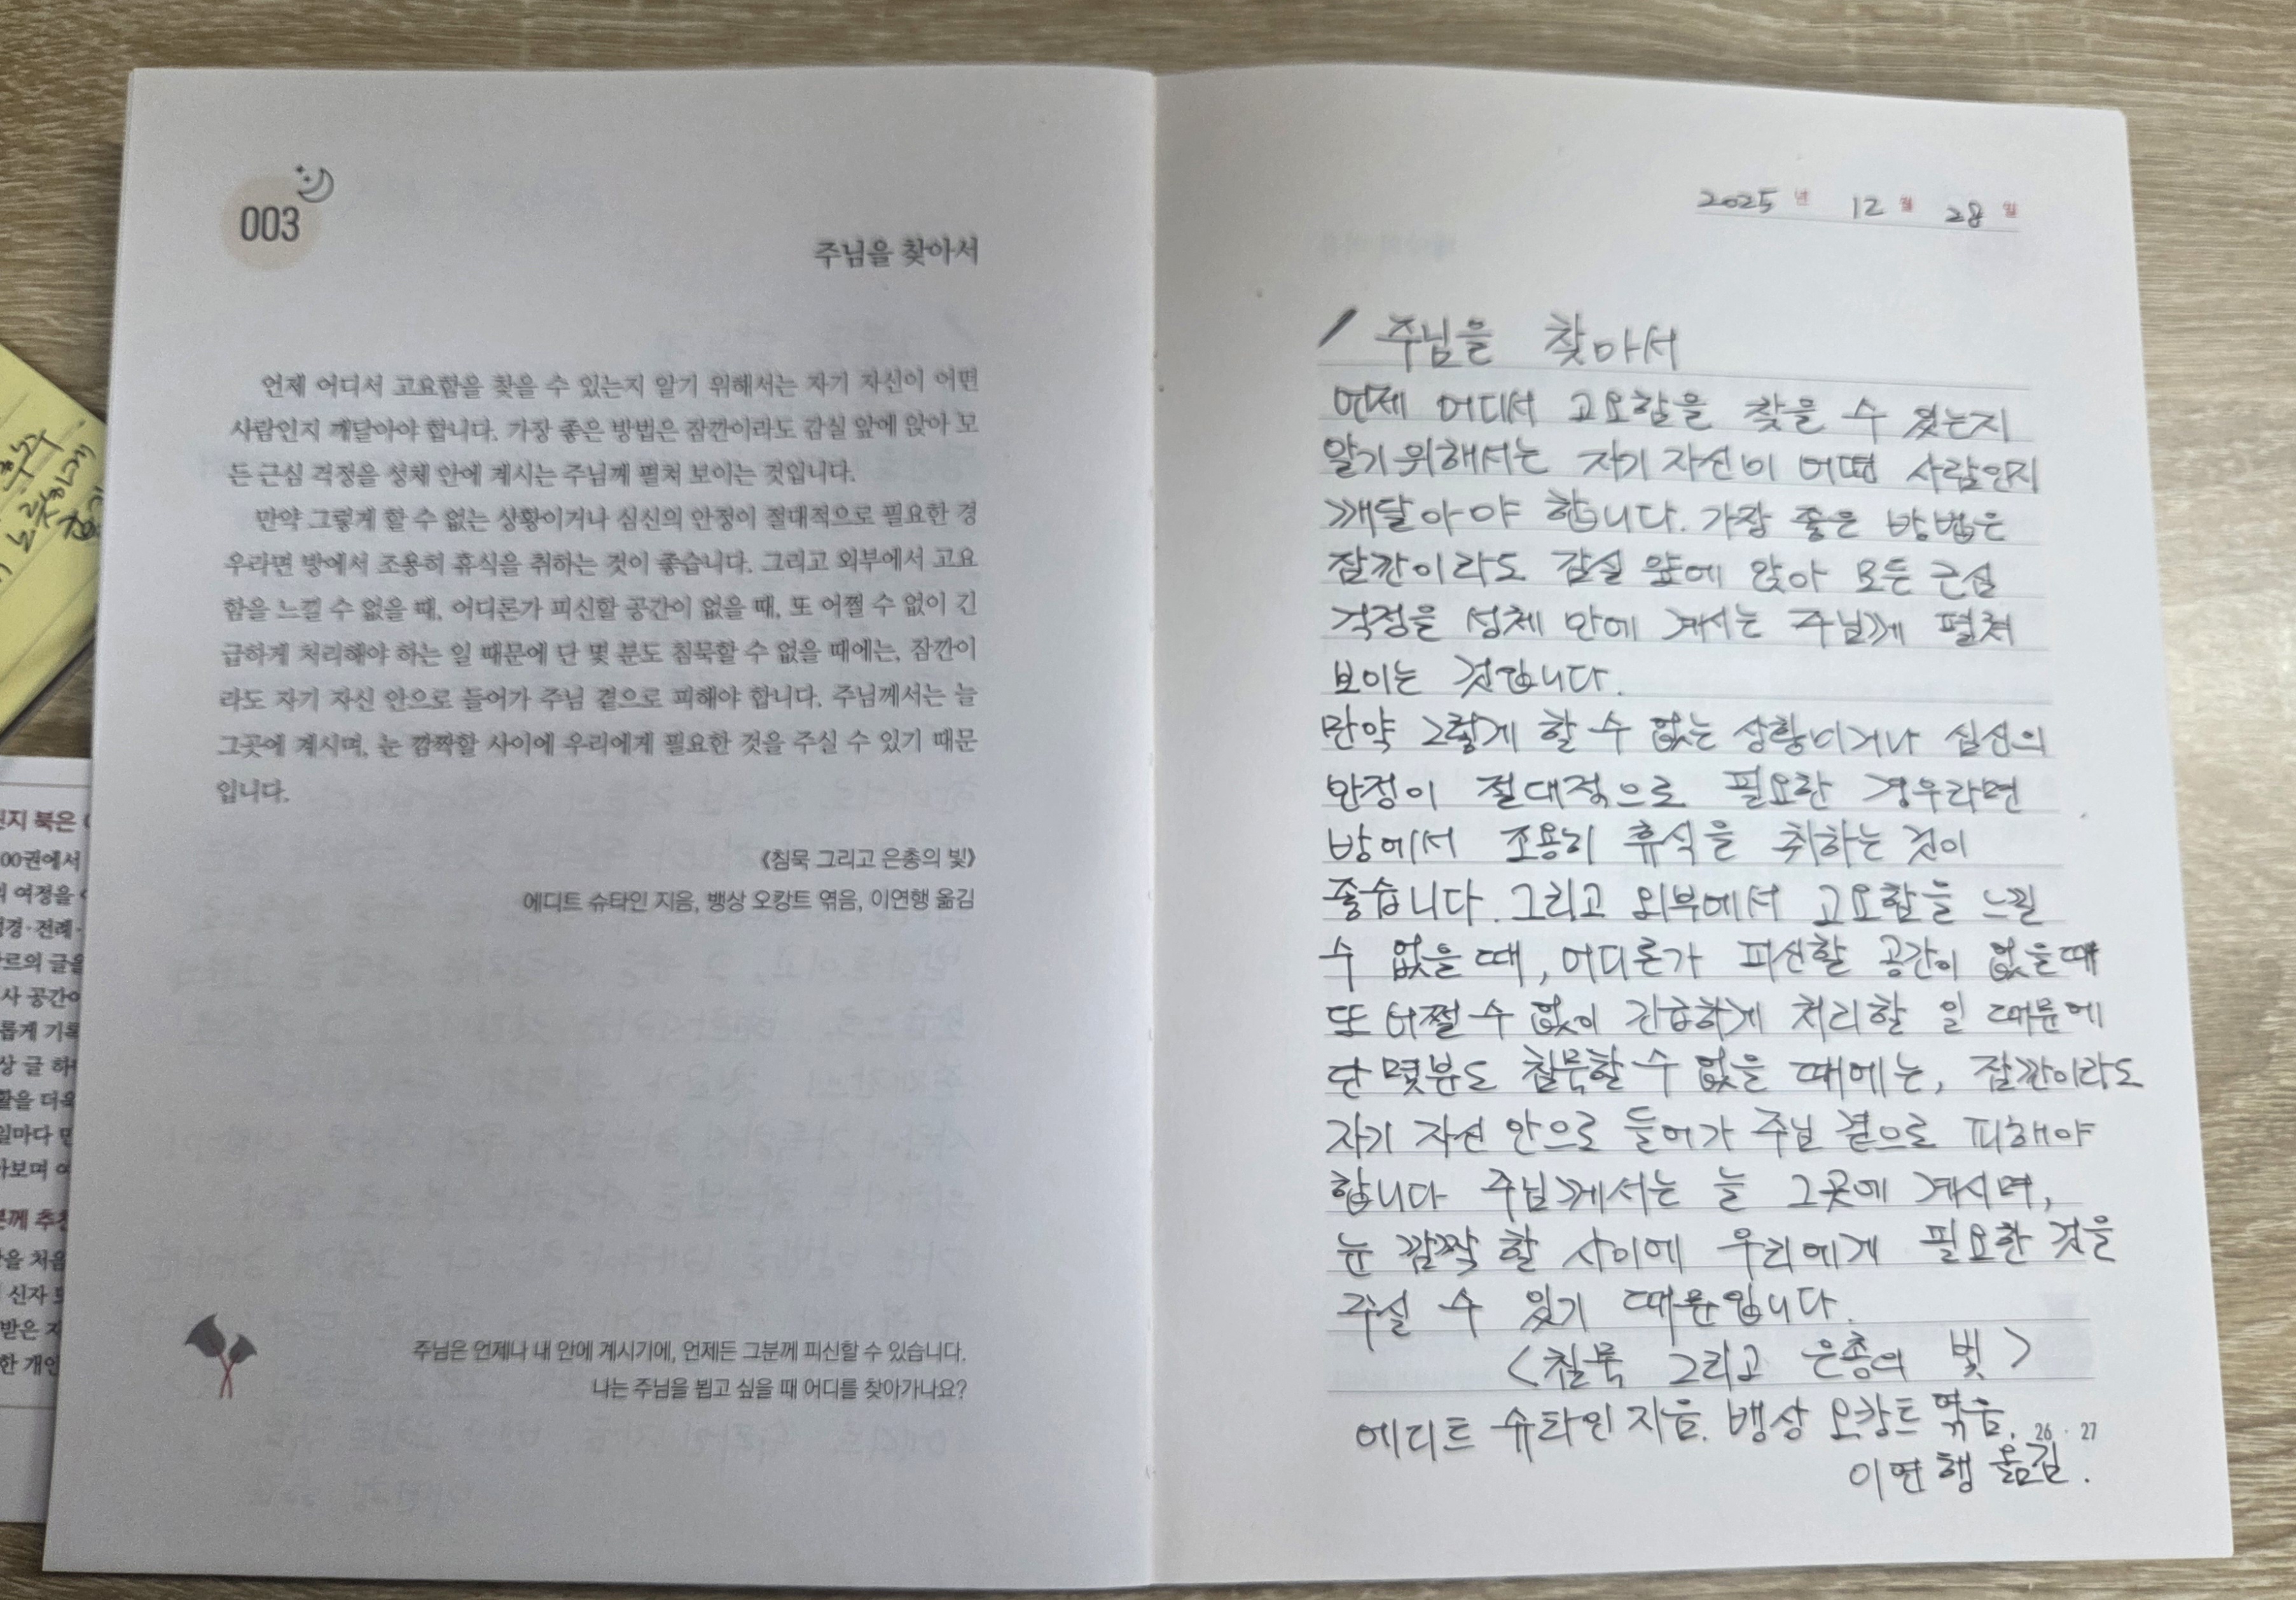 003
주님을 찾아서
언제 어디서 고요함을 찾을 수 있는지 알기 위해서는 자기 자신이 어떤
사람인지 깨달아야 합니다. 가장 좋은 방법은 잠깐이라도 감실 앞에 앉아 모
든 근심 걱정을 성체 안에 계시는 주님께 펼쳐 보이는 것입니다.
만약 그렇게 할 수 없는 상황이거나 심신의 안정이 절대적으로 필요한 경
우라면 방에서 조용히 휴식을 취하는 것이 좋습니다. 그리고 외부에서 고요
함을 느낄 수 없을 때, 어디론가 피신할 공간이 없을 때, 또 어쩔 수 없이 긴
급하게 처리해야 하는 일 때문에 단 몇 분도 침묵할 수 없을 때에는, 잠깐이
라도 자기 자신 안으로 들어가 주님 곁으로 피해야 합니다. 주님께서는 늘
그곳에 계시며, 눈 깜짝할 사이에 우리에게 필요한 것을 주실 수 있기 때문
입니다.
《침묵 그리고 은총의 빛》
에디트 슈타인 지음, 뱅상 오캉트 엮음, 이연행 옮김
주님은 언제나 내 안에 계시기에, 언제든 그분께 피신할 수 있습니다.
나는 주님을 뵙고 싶을 때 어디를 찾아가나요?
2025년 12월 28일
/ 주님을 찾아서
언제 어디서 고요함을 찾을 수 있는지
알기 위해서는 자기 자신이 어떤 사람인지
깨달아야 합니다. 가장 좋은 방법은
잠깐이라도 감실 앞에 앉아 모든 근심
걱정을 성체 안에 계시는 주님께 펼쳐
보이는 것입니다.
만약 그렇게 할 수 없는 상황이거나 심신의
안정이 절대적으로 필요한 경우라면
방에서 조용히 휴식을 취하는 것이
좋습니다. 그리고 외부에서 고요함을 느낄
수 없을 때, 어디론가 피신할 공간이 없을 때
또 어쩔 수 없이 긴급하게 처리할 일 때문에
단 몇분도 침묵할 수 없을 때에는, 잠깐이라도
자기 자신 안으로 들어가 주님 곁으로 피해야
합니다 주님께서는 늘 그곳에 계시며,
눈 깜짝 할 사이에 우리에게 필요한 것을
주실 수 있기 때문입니다.
<침묵 그리고 은총의 빛>
에디트 슈타인 지음. 뱅상 오캉트 엮음.
26 · 27
이연행 옮김.